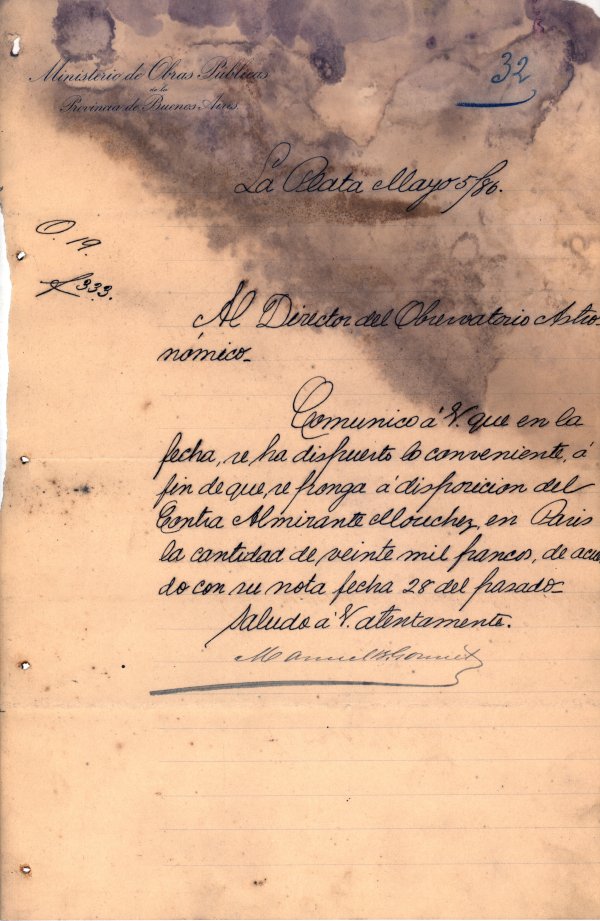 Ministerio de Obras Públicas
de la
Provincia de Buenos Aires
32
La Plata Mayo 5/86.
O. 19.
333.
Al Director del Observatorio Astro-
nómico-
Comunico á V. que en la
fecha, se ha dispuesto lo conveniente, á
fin de que, se ponga á disposicion del
Contra Almirante Mouchez, en Paris
la cantidad de veinte mil francos, de acuer
do con su nota fecha 28 del pasado-
Saludo á V. atentamente.
Manuel B. Gonnet